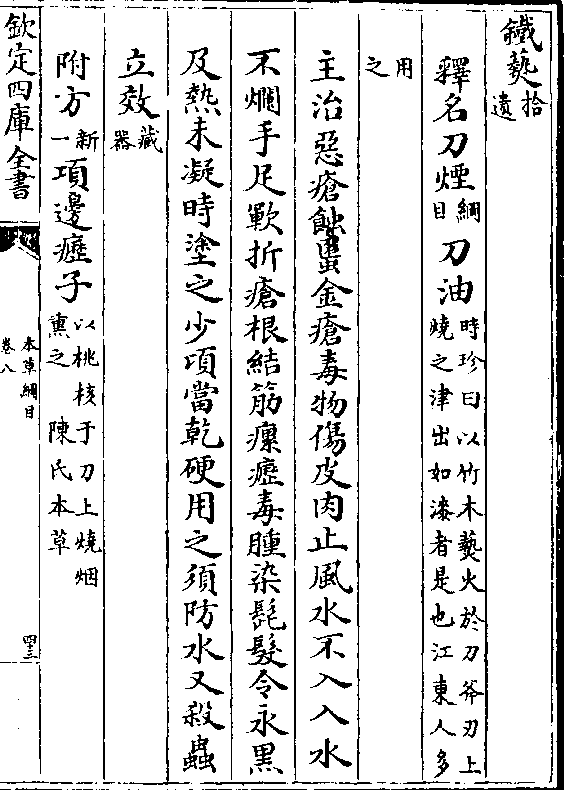 鐵爇拾遺
釋名刀煙綱目刀油時珍曰以竹木爇火於刀斧刃上燒之津出如漆者是也江東人多
用之
主治惡瘡蝕䘌金瘡毒物傷皮肉止風水不入入水
不爛手足皸折瘡根結筋瘰癧毒腫染髭髮令永黒
及熱未凝時塗之少項當乾硬用之須防水又殺蟲
立效藏器
附方新一項邊癧子以桃核于刀上燒烟熏之 陳氏本草
欽定四庫全書
本草綱目
卷八
四三